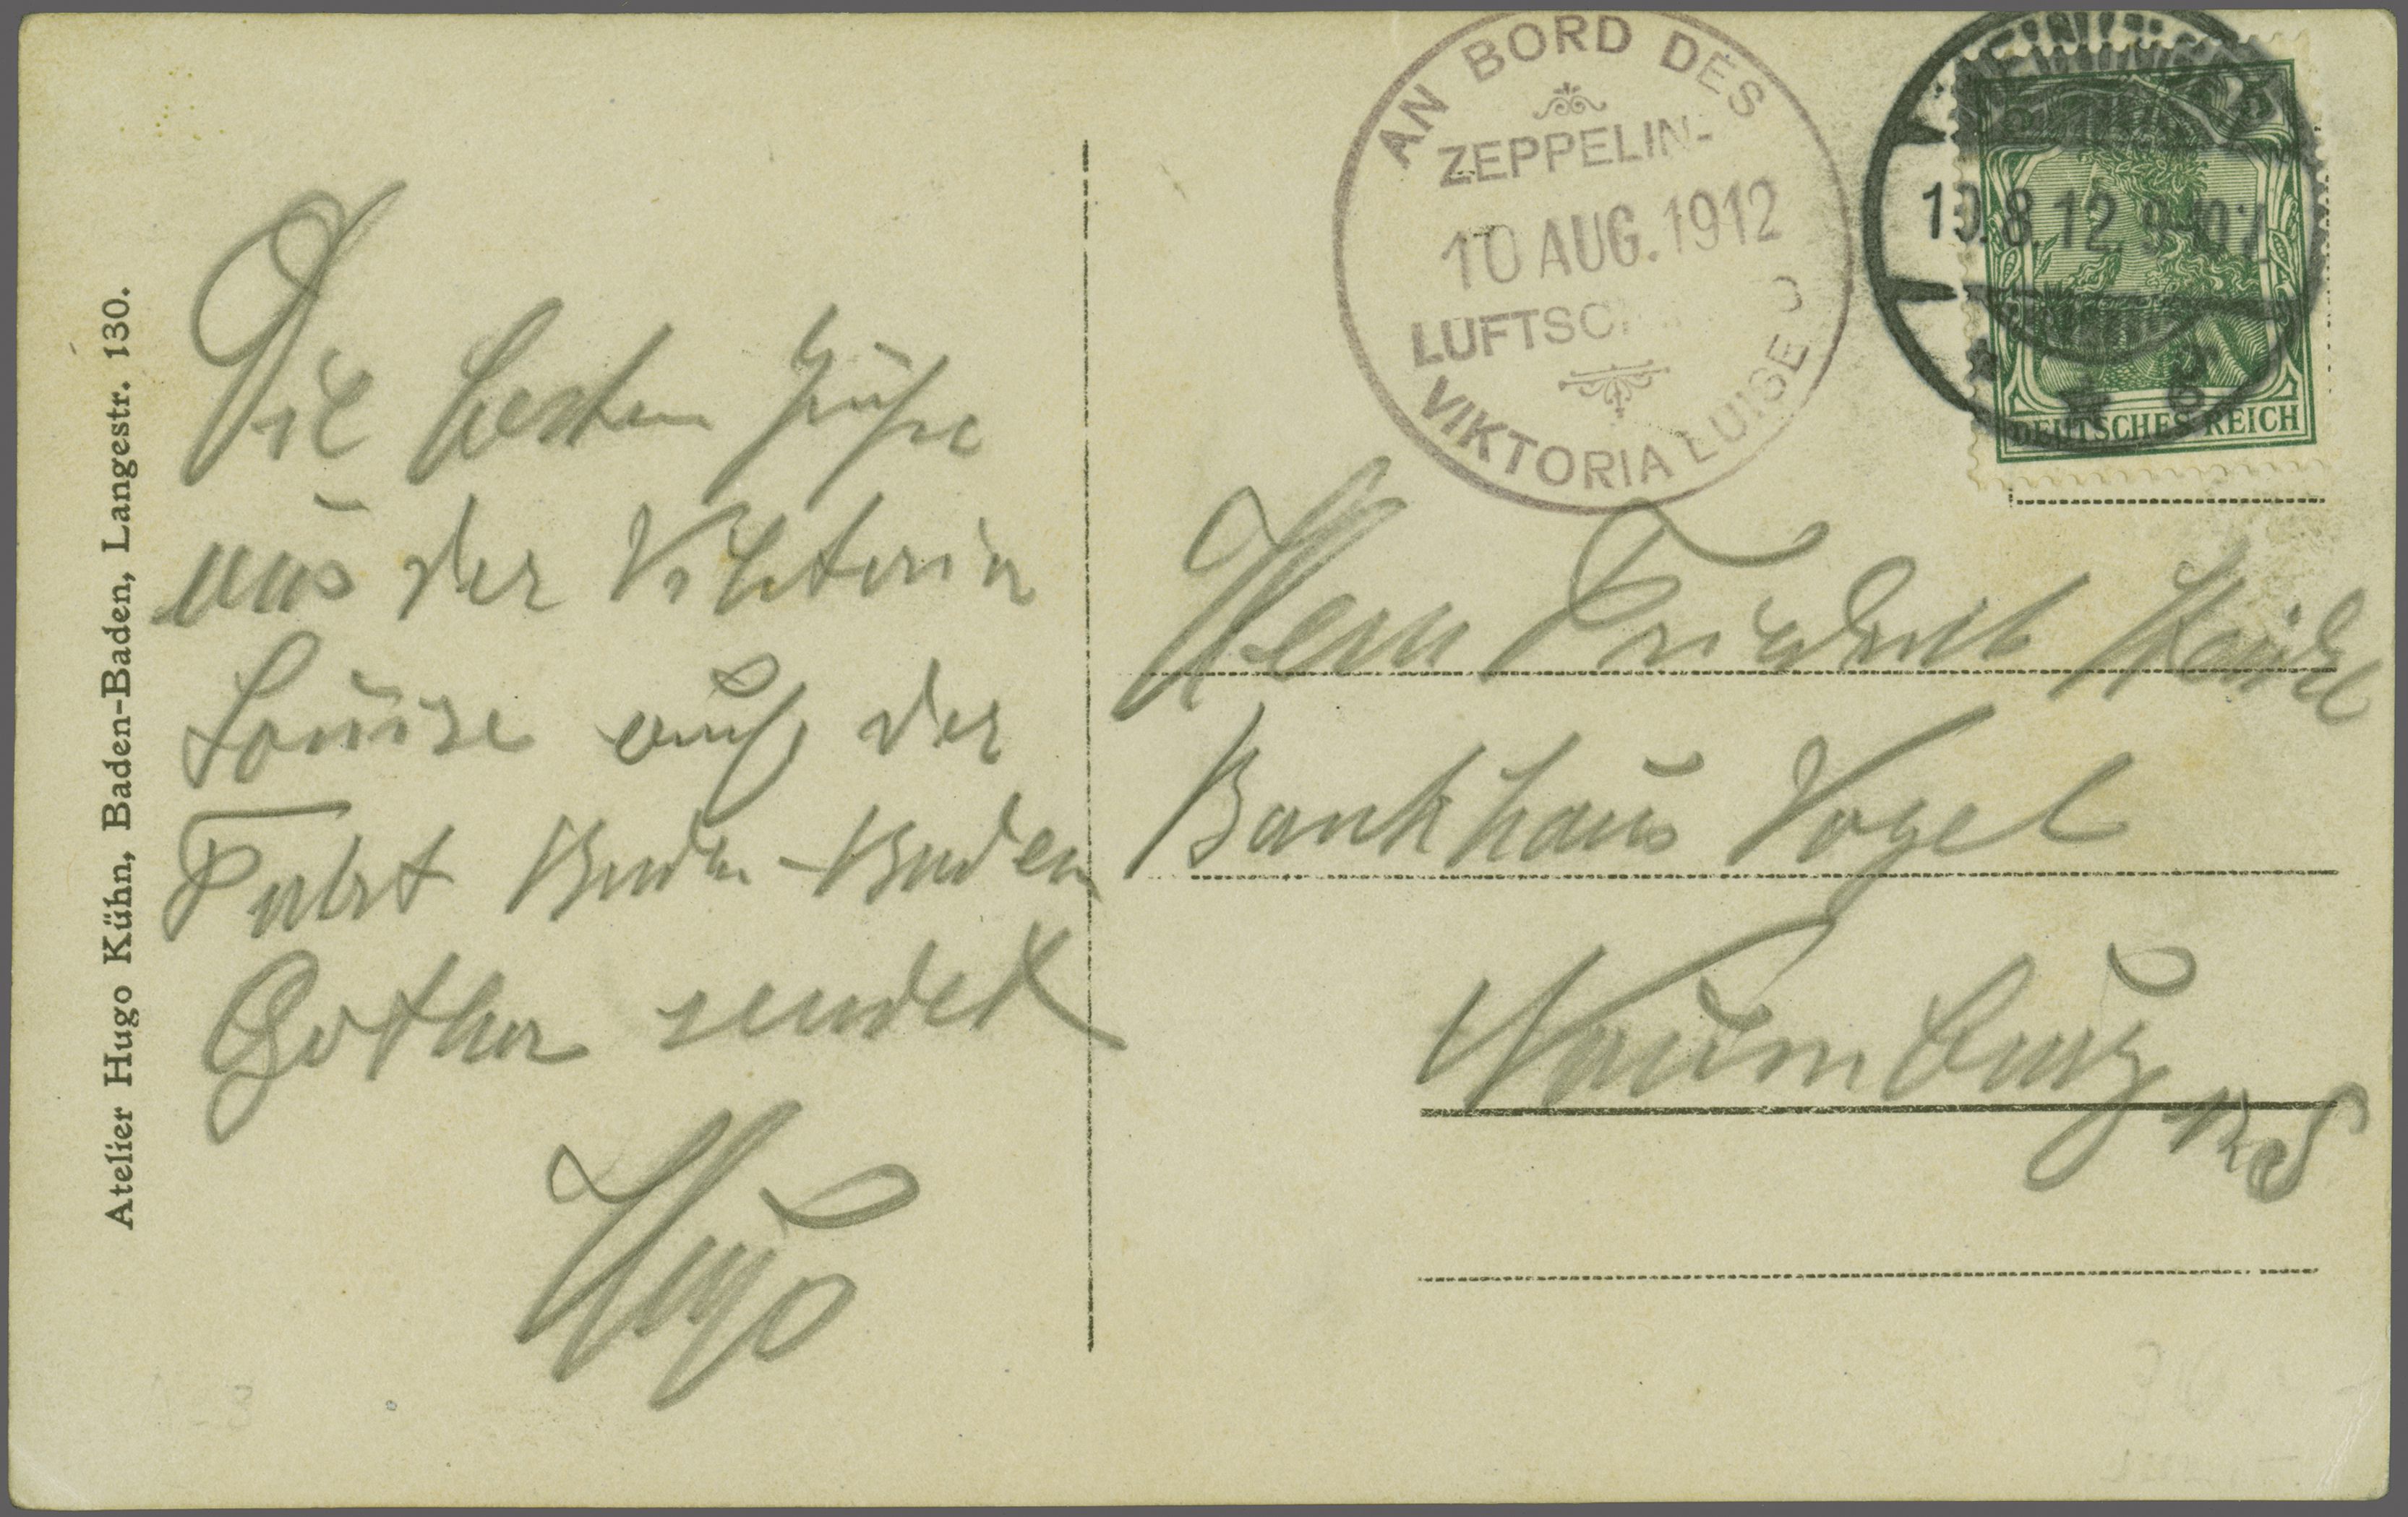 Atelier Hugo Kühn, Baden-Baden, Langestr. 130.
Die besten Grüße
aus der Viktoria
Louise auf der
Fahrt Baden-Baden
Gotha sendet
Hugo
AN BORD DES
ZEPPELIN-
10 AUG. 1912
LUFTSC
VIKTORIA LUISE
10.8.12.
DEUTSCHES REICH
Herrn Friedrich
Bankhaus Vogel
Naumburg